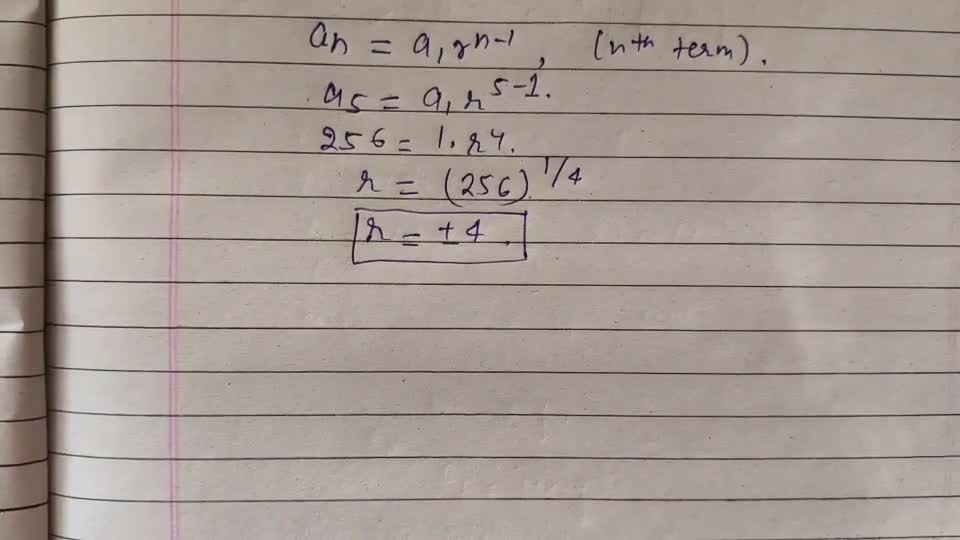 an = a₁rⁿ⁻¹, (nᵗʰ term).
a₅ = a₁r⁵⁻¹.
256 = 1.r⁴.
r = (256)^1/4
r = ±4.